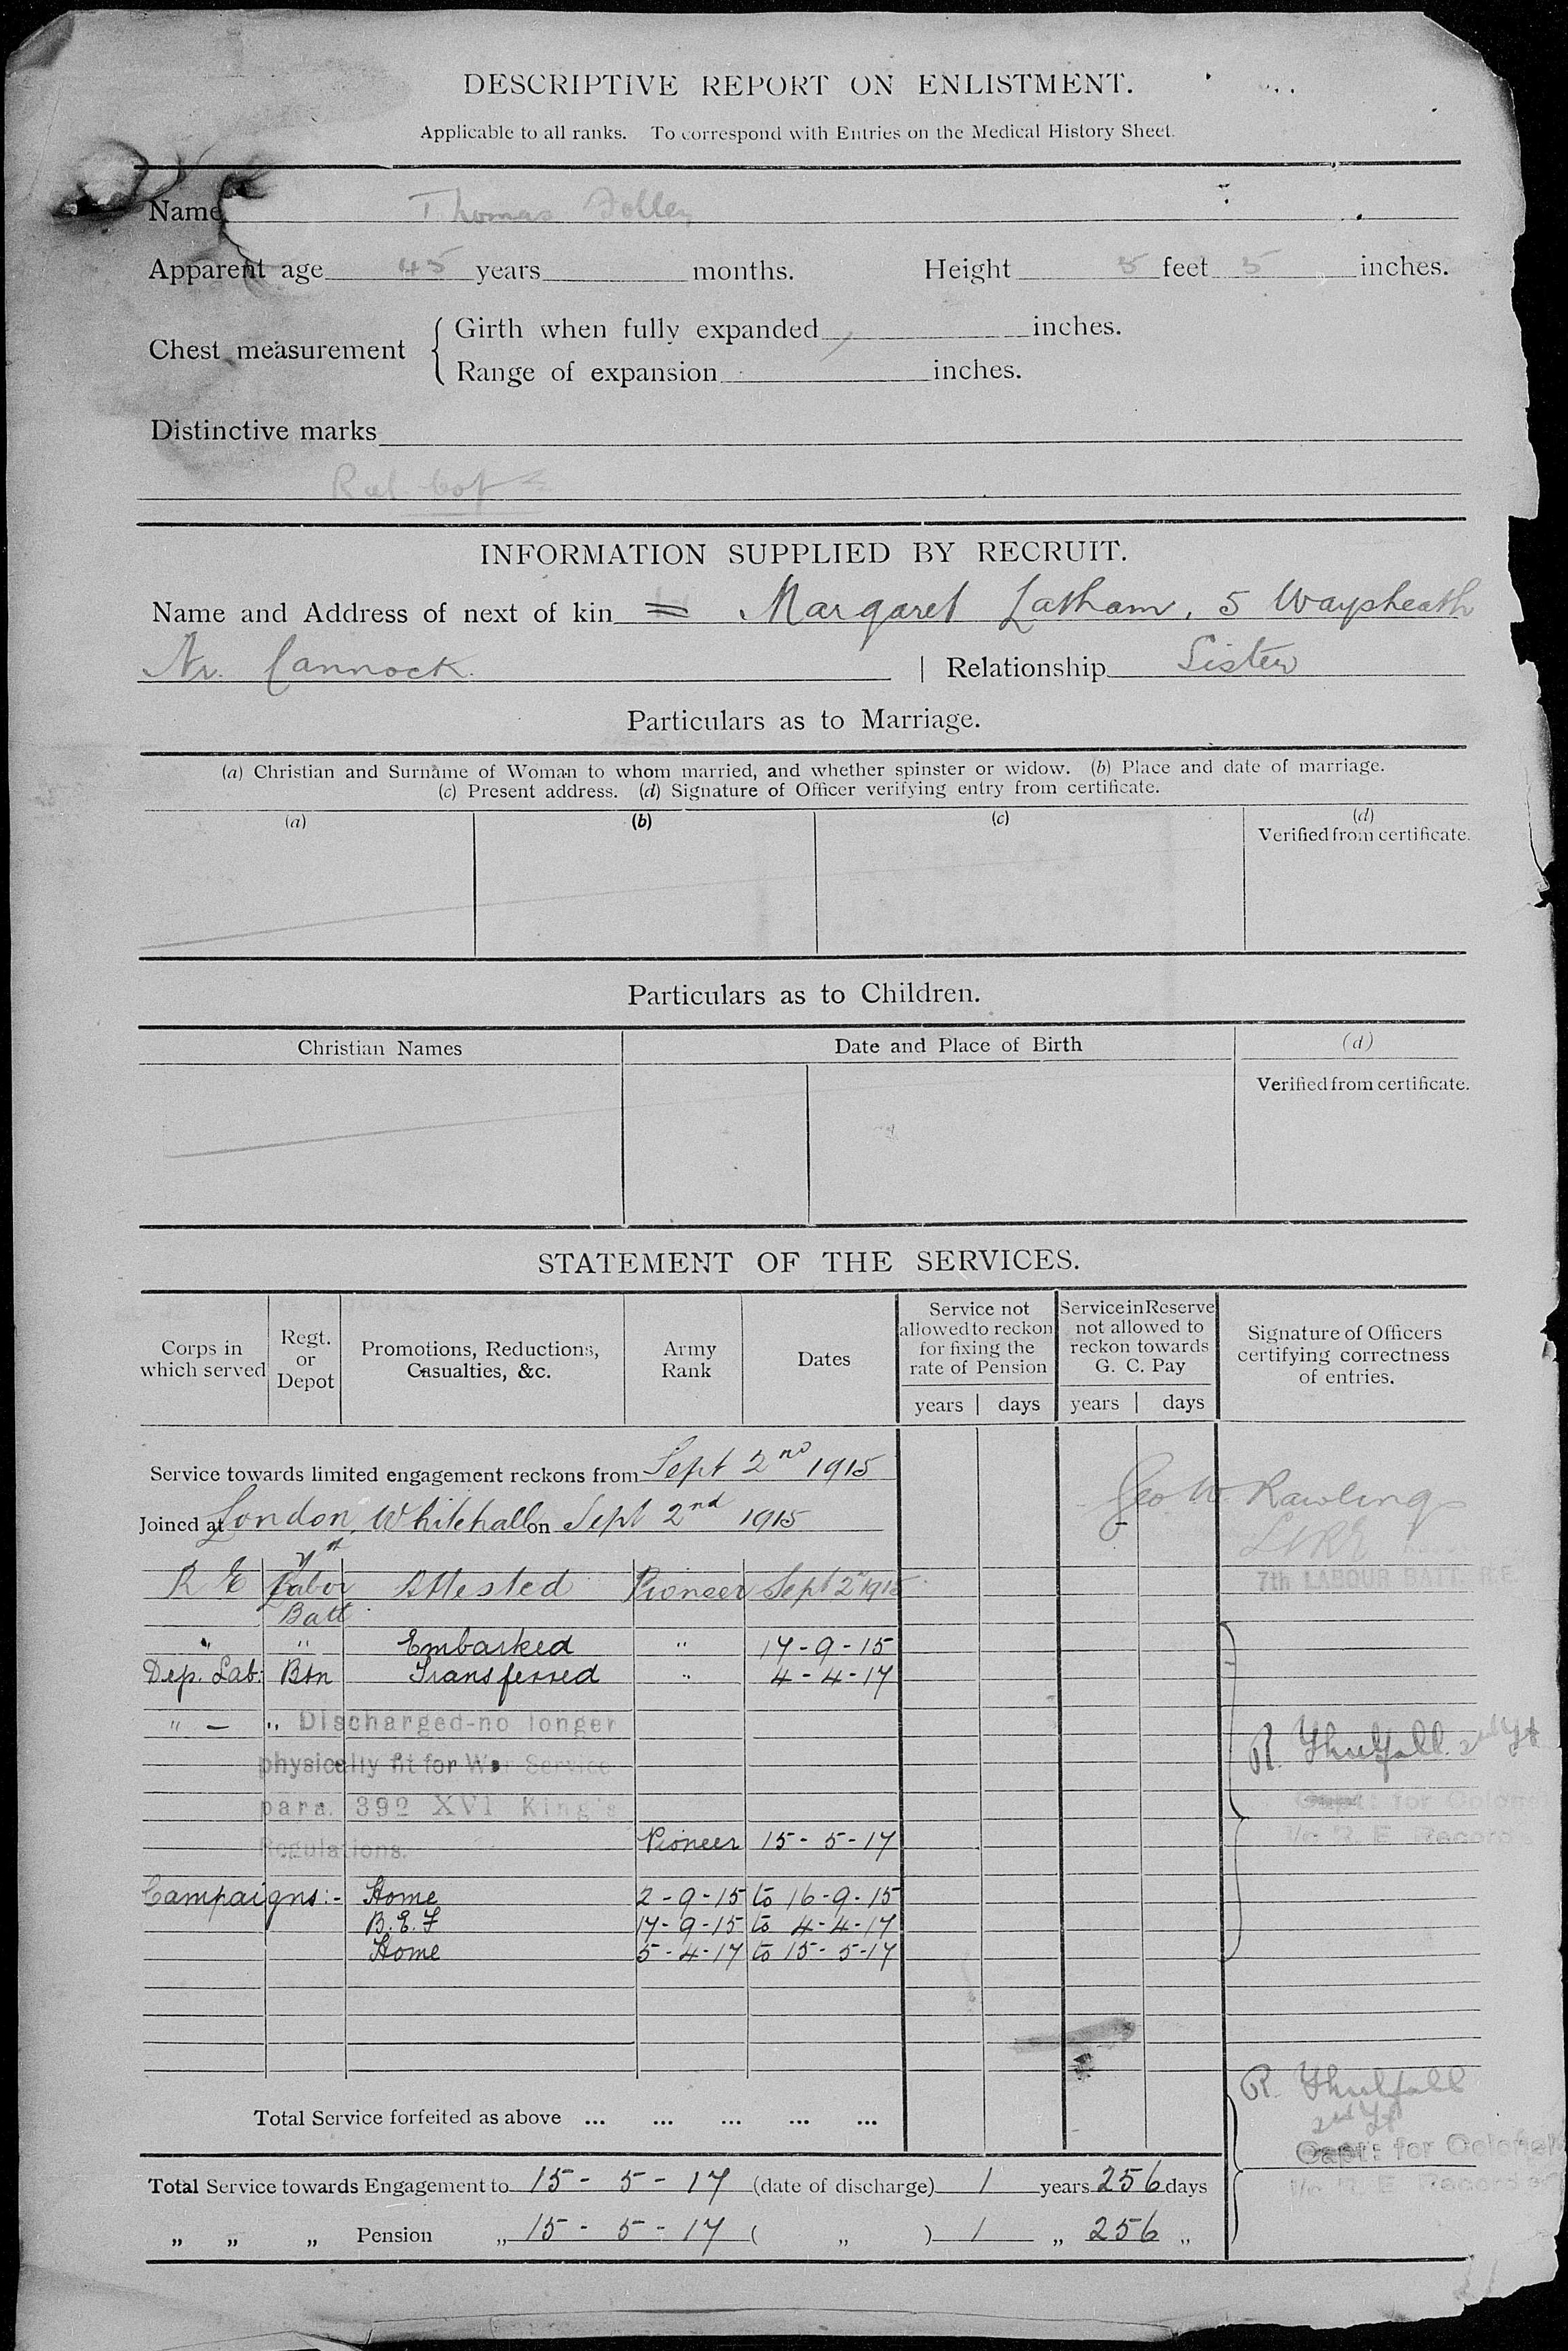 DESCRIPTIVE REPORT ON ENLISTMENT.
Applicable to all ranks. To correspond with Entries on the Medical History Sheet.
Name Thomas Jolley
Apparent age 45 years months. Height 5 feet 5 inches.
Chest measurement { Girth when fully expanded inches.
Range of expansion inches.
Distinctive marks
INFORMATION SUPPLIED BY RECRUIT.
Name and Address of next of kin Margaret Latham, 5 Waypsheath
Nr. Cannock. | Relationship Sister
Particulars as to Marriage.
(a) Christian and Surname of Woman to whom married, and whether spinster or widow. (b) Place and date of marriage.
(c) Present address. (d) Signature of Officer verifying entry from certificate.
(a) (b) (c) (d)
Verified from certificate.
Particulars as to Children.
Christian Names Date and Place of Birth (d)
Verified from certificate.
STATEMENT OF THE SERVICES.
Corps in which served Regt. or Depot Promotions, Reductions, Casualties, &c. Army Rank Dates Service not allowed to reckon for fixing the rate of Pension Service in Reserve not allowed to reckon towards G. C. Pay Signature of Officers certifying correctness of entries.
years | days years | days
Service towards limited engagement reckons from Sept 2nd 1915
Joined at London, Whitehall on Sept 2nd 1915 Geo W. Rawlings
R E 7th Labor Attested Pioneer Sept 2nd 1915 7th LABOUR BATT. R.E.
Batt
" " Embarked " 17-9-15
Dep. Lab. Btn Transferred " 4-4-17
" - " Discharged-no longer
physically fit for War Service R. Thulfall 2nd Lt
para. 392 XVI King's Capt: for Colonel
Regulations. Pioneer 15-5-17 i/c R. E. Record
Campaigns:- Home 2-9-15 to 16-9-15
B.E.F 17-9-15 to 4-4-17
Home 5-4-17 to 15-5-17
R. Thulfall
2nd Lt
Total Service forfeited as above ... ... ... ... ...
Capt: for Colonel
Total Service towards Engagement to 15-5-17 (date of discharge) 1 years 256 days
i/c R. E. Records
" " " Pension " 15-5-17 ( " ) 1 " 256 "